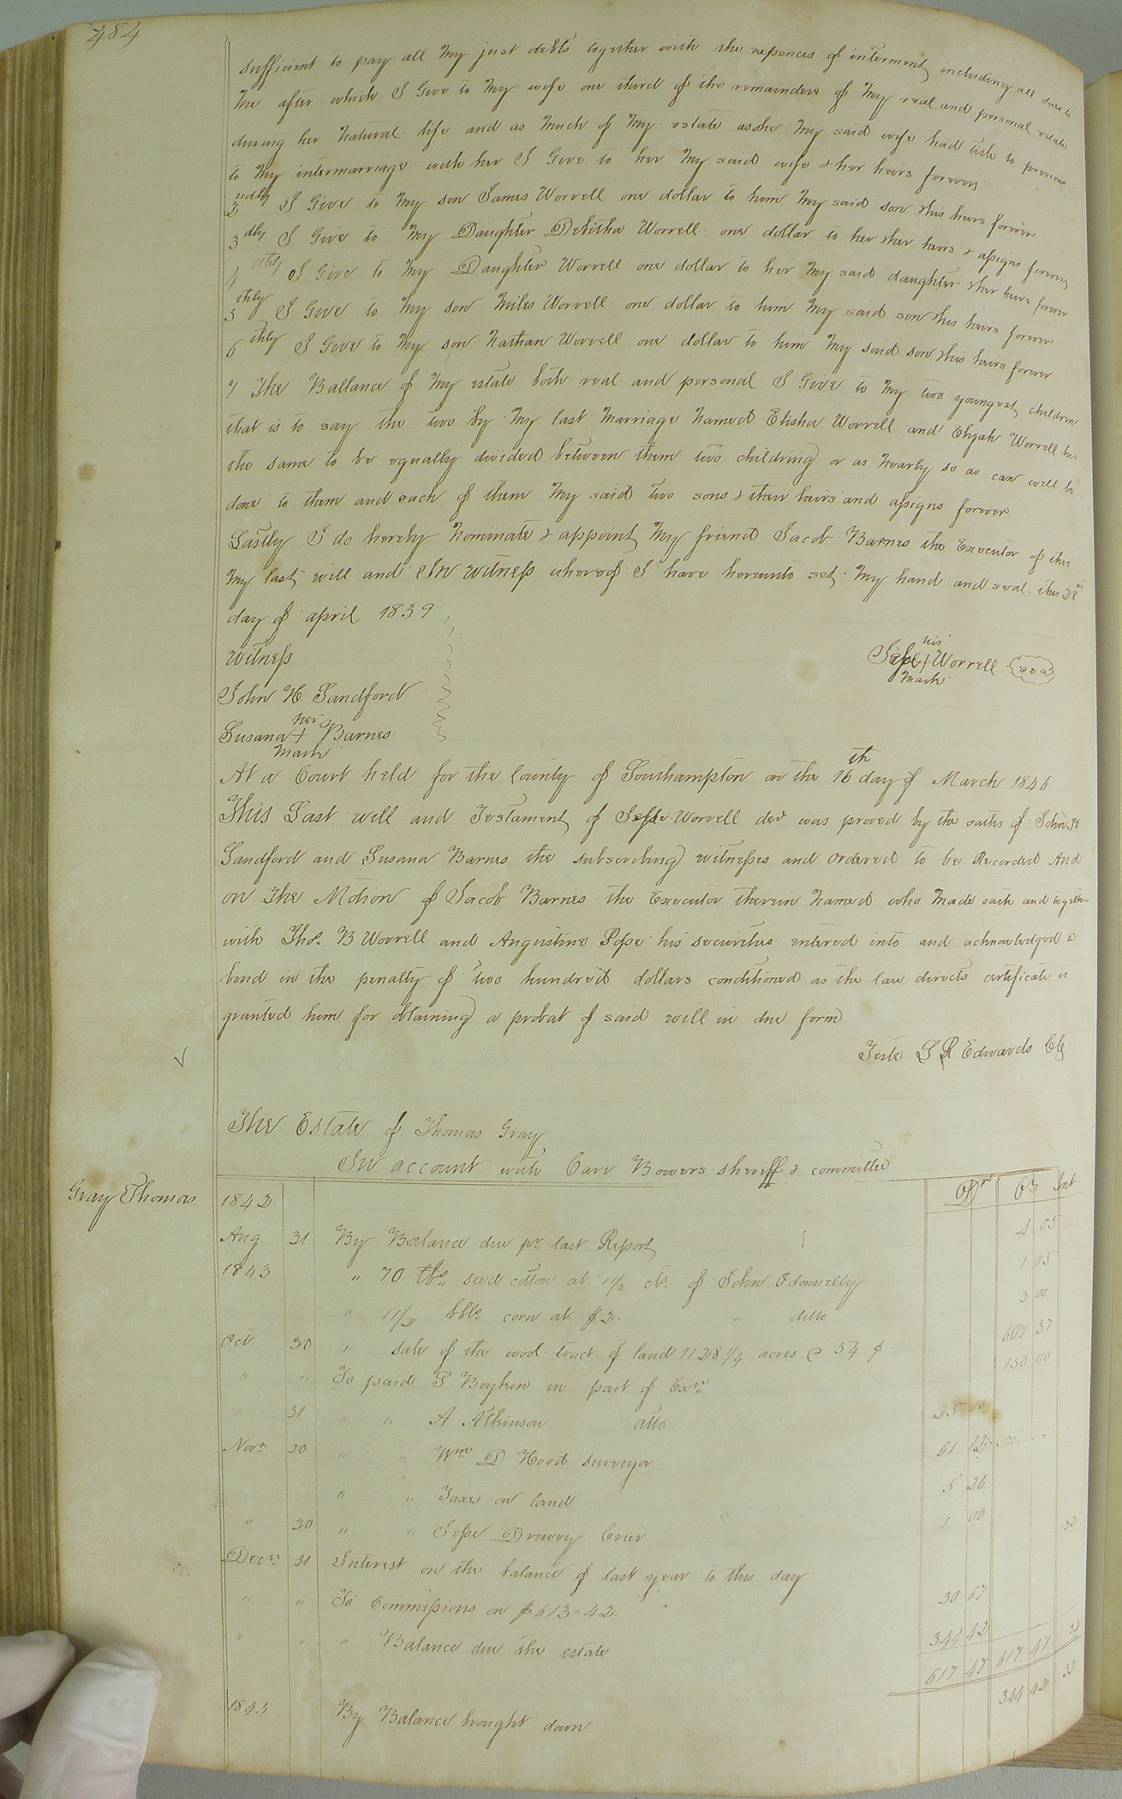 484
sufficient to pay all my just debts together with the expences of interment including all due to
me after which I Give to my wife one third of the remainder of my real and personal estate
during her natural life and as much of my estate as she my said wife had title to previous
to my intermarriage with her I Give to her my said wife & her heirs forever
2ndly I Give to my son James Worrell one dollar to him my said son & his heirs forever
3dly I Give to my Daughter Debitha Worrell one dollar to her & her heirs & assigns forever
4thly I Give to my Daughter Worrell one dollar to her my said daughter & her heirs forever
5thly I Give to my son Miles Worrell one dollar to him my said son & his heirs forever
6thly I Give to my son Nathan Worrell one dollar to him my said son & his heirs forever
7 The Ballance of my estate both real and personal I Give to my two youngest children
that is to say the two by my last marriage named Elisha Worrell and Elijah Worrell
the same to be equally divided between them two childring or as nearly so as can well be
done to them and each of them my said two sons & their heirs and assigns forever
Lastly I do hereby nominate & appoint my friend Jacob Barnes the Executor of this
my last will and In witness whereof I have hereunto set my hand and seal this 28th
day of april 1839
witness
his
Jesse + Worrell seal
mark
John H. Sandford
her
Susana + Barnes
mark
At a Court held for the County of Southampton on the 16th day of March 1846
This Last will and Testament of Jesse Worrell decd was proved by the oaths of John H
Sandford and Susana Barnes the subscribing witnesses and ordered to be Recorded And
on The Motion of Jacob Barnes the Executor therein named who made oath and together
with Thos. B Worrell and Augustine Pope his securities entered into and acknowledged a
bond in the penalty of two hundred dollars conditioned as the law directs certificate is
granted him for obtaining a probat of said will in due form
Teste L R Edwards Clk
The Estate of Thomas Gray
In account with Carr Bowers sheriff & committee
Gray Thomas
1842 Dr Cr Int
Aug 31 By Balance due pr last Report 4 05
1843 " 70 lbs. seed cotton at 1 1/2 cts. of John Odonnelly 1 05
" 1 1/2 bbls corn at $2. " ditto 3 00
Oct 30 " sale of the wood tract of land 1128 1/4 acres @ 54 ¢ 609 37
" " To paid S Boykin in part of Exn 150 00
" 31 " " A Atkinson atto 25 00
Novr 20 " " Wm D Hood surveyor 61 12
" " Taxes on land 5 26
" 30 " " Jesse Drewry Crier 1 00
Decr 31 Interest on the balance of last year to this day 32
" " To Commissions on $613.42. 30 67
" " " Balance due the estate 344 42 32
617 47 617 47
1843 By Balance brought down 344 42 32